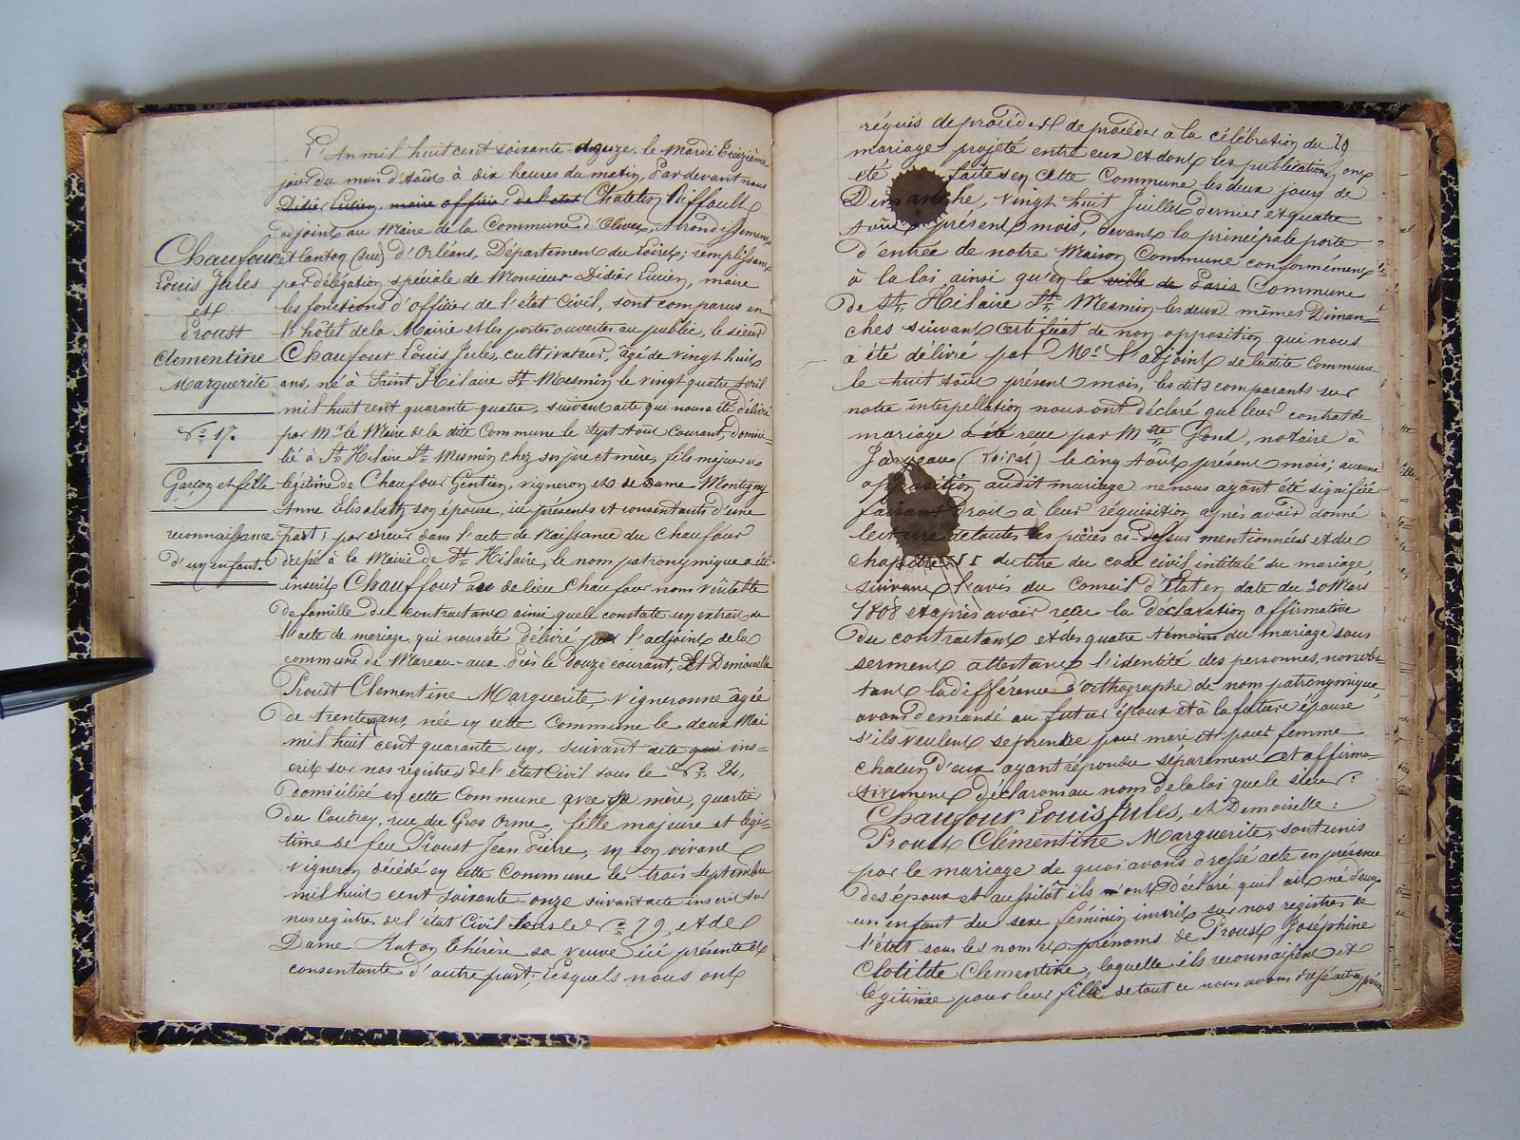 L'An mil huit cent soixante-douze, le Mardi treizième
jour du mois d'août à dix heures du matin, Par devant nous
Didier Lucien, maire officier de l'état Chatelin Riffault
adjoint au Maire de la Commune d'Olivet, Arrondissement
et Canton (Sud) d'Orléans, Département du Loiret, remplissant
par délégation spéciale de Monsieur Didier Lucien, maire
les fonctions d'officier de l'état Civil, sont comparus en
l'hôtel de la Mairie et les portes ouvertes au public, le sieur
Chaufour Louis Jules, cultivateur, âgé de vingt huit
ans, né à Saint Hilaire St Mesmin le vingt quatre avril
mil huit cent quarante quatre, suivant acte qui nous a été délivré
par Mr le Maire de la dite Commune le sept Août courant, domici-
lié à St Hilaire St Mesmin chez ses père et mère, fils majeur et
légitime de Chaufour Gentien, vigneron et de Dame Montigny
Anne Elisabeth son épouse, ici présents et consentants d'une
part; par erreur dans l'acte de Naissance du Chaufour
dressé à la Mairie de St Hilaire, le nom patronymique a été
inscrit Chauffour au de lieu Chaufour nom véritable
de famille du contractant ainsi que le constate un extrait de
l'acte de mariage qui nous été délivré par l'adjoint de la
commune de Mareau-aux-Prés le douze courant, Et Demoiselle
Proust Clementine Marguerite, Vigneronne âgée
de trente un ans, née en cette Commune le deux Mai
mil huit cent quarante un, suivant acte qui ins-
crit sur nos registres de l'état Civil sous le No 24,
domiciliée en cette Commune avec sa mère, quartier
du Coudray, rue du Gros Orme, fille majeure et légi-
time de feu Proust Jean Pierre, en son vivant
vigneron décédé en cette Commune le trois Septembre
mil huit cent soixante-onze suivant acte inscrit sur
nos registres de l'état Civil sous le No 79, et de
Dame Anton Thérèse sa veuve ici présente et
consentante d'autre part; lesquels nous ont
Chaufour
Louis Jules
et
Proust
Clementine
Marguerite
No 17.
Garçon et fille
reconnaissance
d'un enfant.
requis de procéder et de procéder à la célébration du
mariage projeté entre eux et dont les publications ont
été faites en cette Commune les deux jours de
Dimanche, vingt huit Juillet dernier et quatre
Août présent mois, devant la principale porte
d'entrée de notre Maison Commune conformément
à la loi ainsi qu'en la ville de Paris Commune
de St Hilaire St Mesmin les deux mêmes Diman-
ches suivant certificat de non opposition qui nous
a été délivré par Mr l'adjoint de la dite commune
le huit août présent mois, les dits comparants sur
notre interpellation nous ont déclaré que leur contrat de
mariage a été reçu par Mtre Gond, notaire à
Jargeau (Loiret) le cinq Août présent mois; aucune
opposition audit mariage ne nous ayant été signifiée
faisant droit à leur réquisition après avoir donné
lecture de toutes les pièces ci-dessus mentionnées et du
chapitre VI du titre du code civil intitulé du mariage
suivant l'avis du Conseil d'Etat en date du 20 Mars
1808 et après avoir reçu la déclaration affirmative
du contractant et des quatre témoins du mariage sous
serment attestant l'identité des personnes, nonobs-
tant la différence d'orthographe de nom patronymique,
avons demandé au futur époux et à la future épouse
s'ils veulent se prendre pour mari et pour femme
chacun d'eux ayant répondu séparément et affirma-
tivement déclarons au nom de la loi que le sieur:
Chaufour Louis Jules, et Demoiselle:
Proust Clémentine Marguerite, sont unis
par le mariage de quoi avons dressé acte en présence
des époux et aussitôt ils ont déclaré qu'il est né d'eux
un enfant du sexe féminin inscrit sur nos registres de
l'état sous les nom et prénoms de Proust Joséphine
Clotilde Clementine, laquelle ils reconnaissent et
légitime pour leur fille de tout ce nous avons dressé acte en